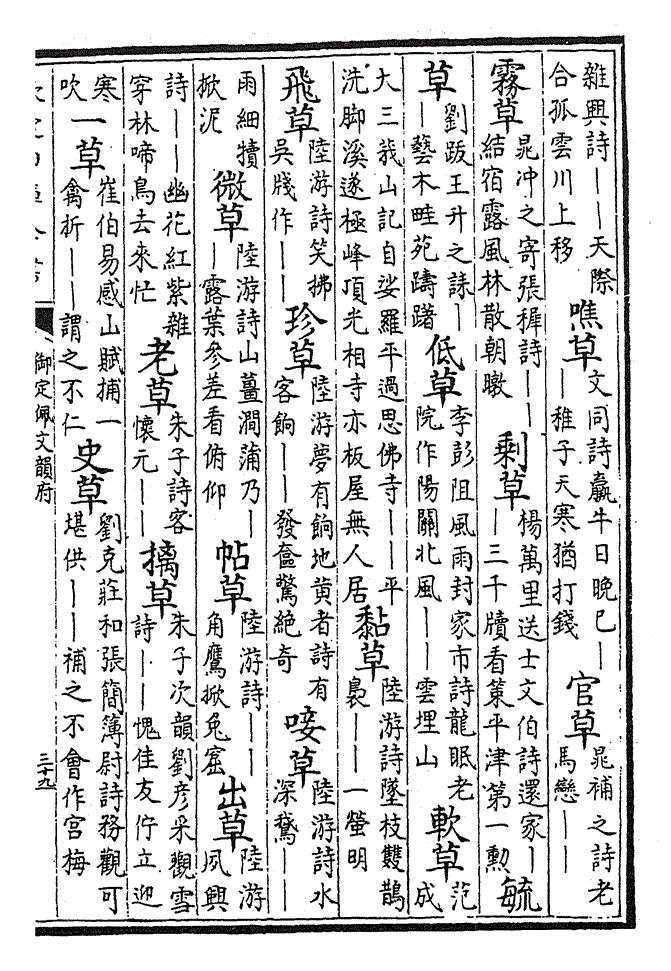 雜興詩——天際合孤雲川上移 噍草 文同詩羸牛日晚已——稚子天寒猶打錢 官草 晁補之詩老馬戀——
霧草 晁冲之寄張樨詩——結宿露風林散朝暾 剩草 楊萬里送士文伯詩還家——三千牘看策平津第一勲 毓
草 劉跂王升之誄——藝木畦苑躊躇 低草 李彭阻風雨封家市詩龍眠老院作陽關北風——雲埋山 軟草 范成
大三莪山記自娑羅平過思佛寺——平洗脚溪遂極峰頂光相寺亦板屋無人居 黏草 陸游詩墜枝雙鵲裊——一螢明
飛草 陸游詩笑拂吳牋作—— 珍草 陸游夢有餉地黄者詩有客餉——發奩驚絕奇 唼草 陸游詩水深鵞——
雨細犢掀泥 微草 陸游詩山薑澗蒲乃——露葉參差看俯仰 帖草 陸游詩——角鷹掀兔窟 出草 陸游夙興
詩——幽花紅紫雜穿林啼鳥去來忙 老草 朱子詩客懷元—— 摛草 朱子次韻劉彦采觀雪詩——愧佳友佇立迎
寒吹 一草 崔伯易感山賦捕一禽折——謂之不仁 史草 劉克莊和張簡簿尉詩務觀可堪供——補之不會作宮梅
御定佩文韻府
三十九